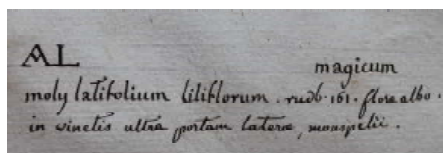 AL
magicum
moly latifolium liliflorum. rudb. 161. flore albo.
in vinetis ultra portam lateræ, monspelii.